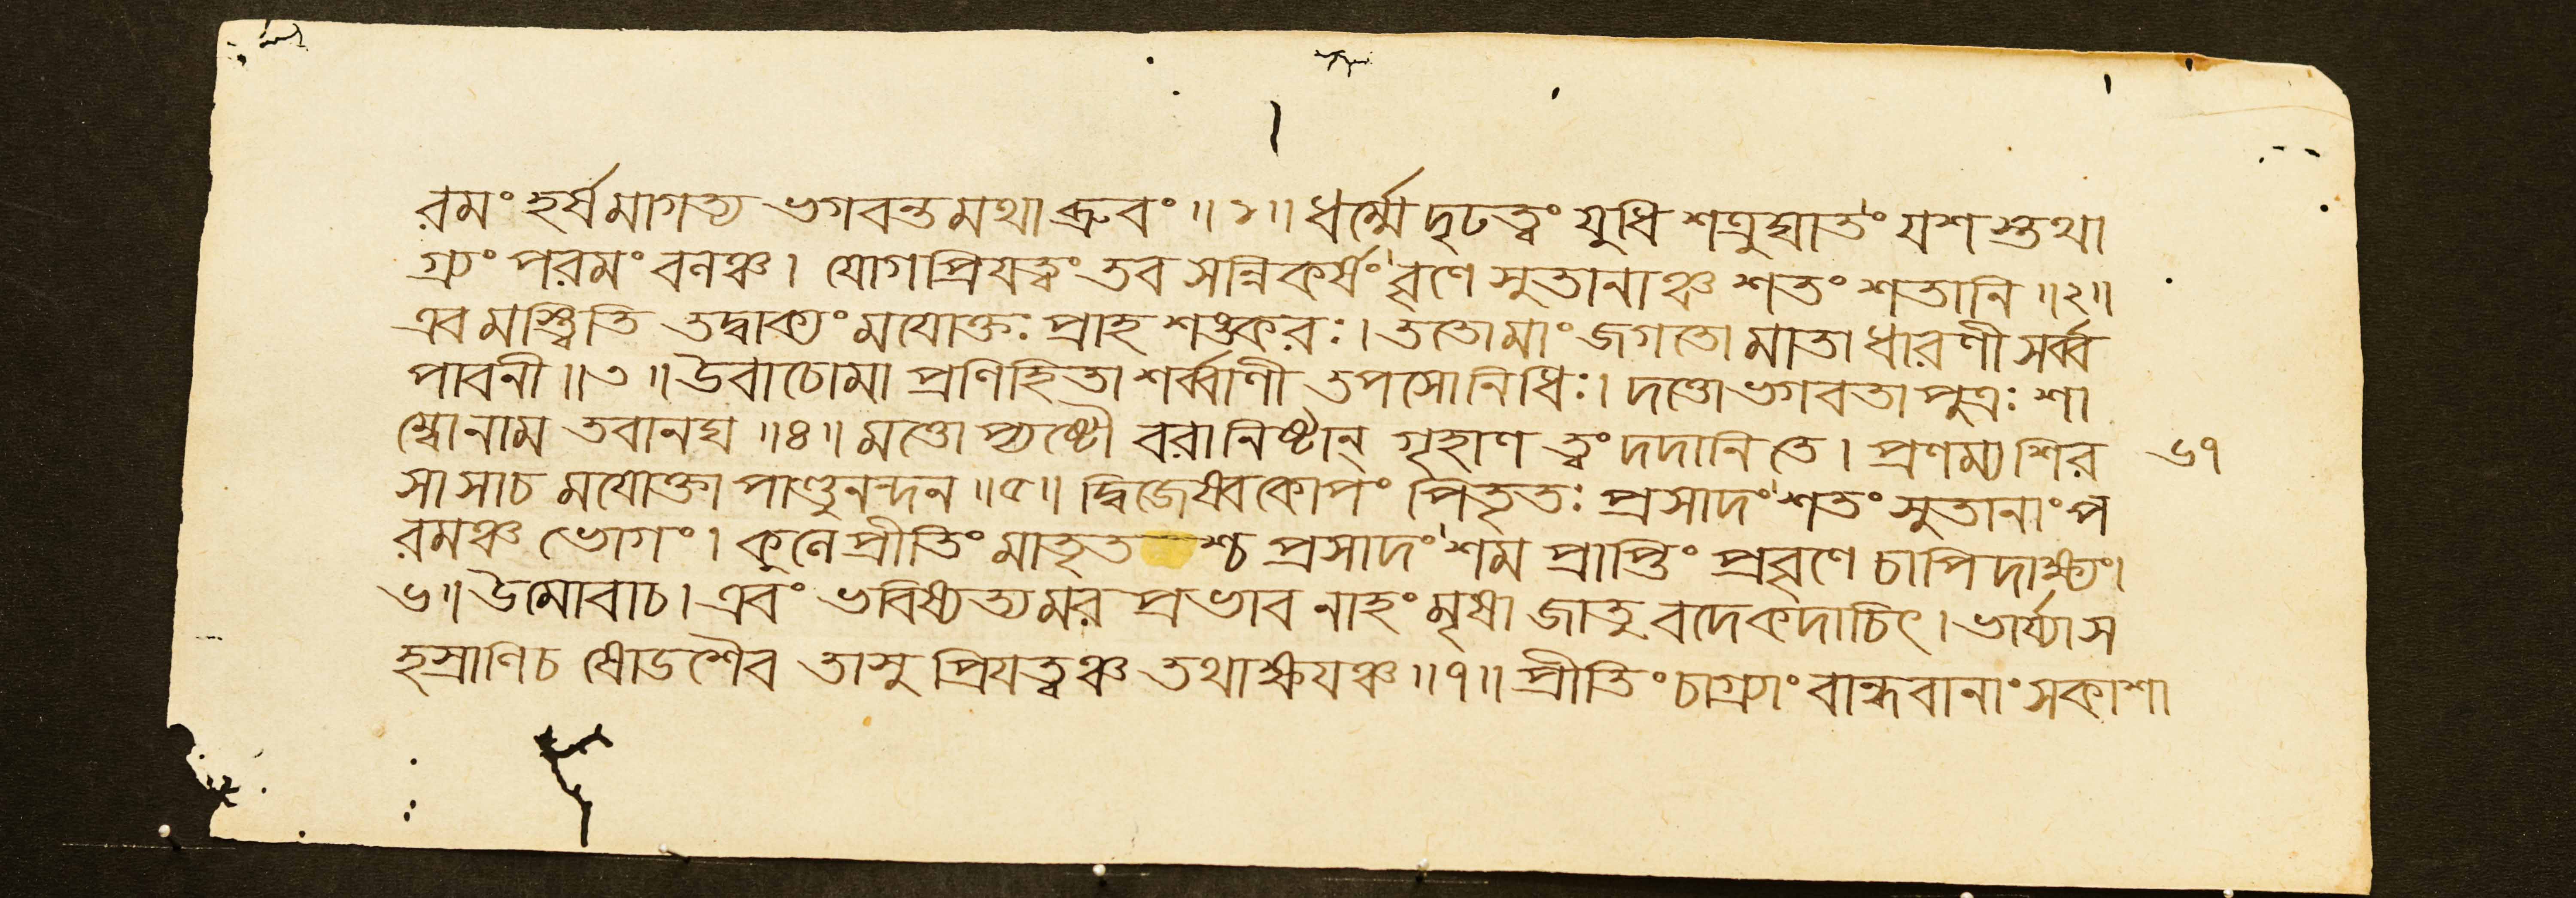 রমং হর্ষমাগত্য ভগবন্তমথাব্রুবং ॥ ১ ॥ ধর্ম্মে দৃঢত্বং যুধি শত্রুঘাতং যশস্তথা
গ্র্যং পরমং বনঞ্চ । যোগপ্রিযত্বং তব সন্নিকর্ষং বৃণে সুতানাঞ্চ শতং শতানি ॥ ২ ॥
এবমস্ত্বিতি তদ্বাক্যং মযোক্তঃ প্রাহ শঙ্করঃ । ততো মাং জগতো মাতা ধারণী সর্ব্ব
পাবনী ॥ ৩ ॥ উবাচোমা প্রণিহিতা শর্ব্বাণী তপসো নিধিঃ । দত্তো ভগবতা পুত্রঃ শা
ম্বো নাম তবানঘ ॥ ৪ ॥ মত্তোপ্যষ্টৌ বরানিষ্টান্ গৃহাণ ত্বং দদানি তে । প্রণম্য শির
৬৭
সা সা চ মযোক্তা পাণ্ডুনন্দন ॥ ৫ ॥ দ্বিজেষ্বকোপং পিতৃতঃ প্রসাদং শতং সুতানাং প
রমঞ্চ ভোগং । কুলে প্রীতিং মাতৃতশ্চ প্রসাদং শম প্রাপ্তিং প্রবৃণে চাপি দাক্ষ্যং ।
৬ ॥ উমোবাচ । এবং ভবিষ্যত্যমর প্রভাব নাহং মৃষা জাতু বদে কদাচিৎ । ভার্য্যা স
হস্রাণি চ ষোডশৈব তাসু প্রিযত্বঞ্চ তথাক্ষযঞ্চ ॥ ৭ ॥ প্রীতিং চাগ্র্যাং বান্ধবানাং সকাশা